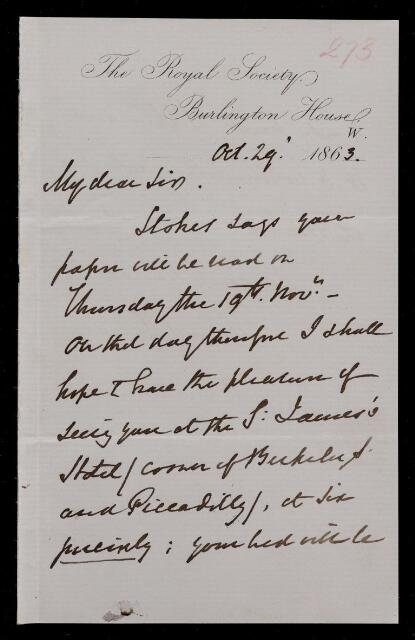 273
The Royal Society
Burlington House
W.
Oct. 29. 1863.
My dear Sir.
Stokes says your
paper will be read on
Thursday the 19th. Novr. —
On that day therefore I shall
hope to have the pleasure of
seeing you at the St. James's
Hotel / corner of Berkeley St.
and Piccadilly /, at six
precisely; your bed will be